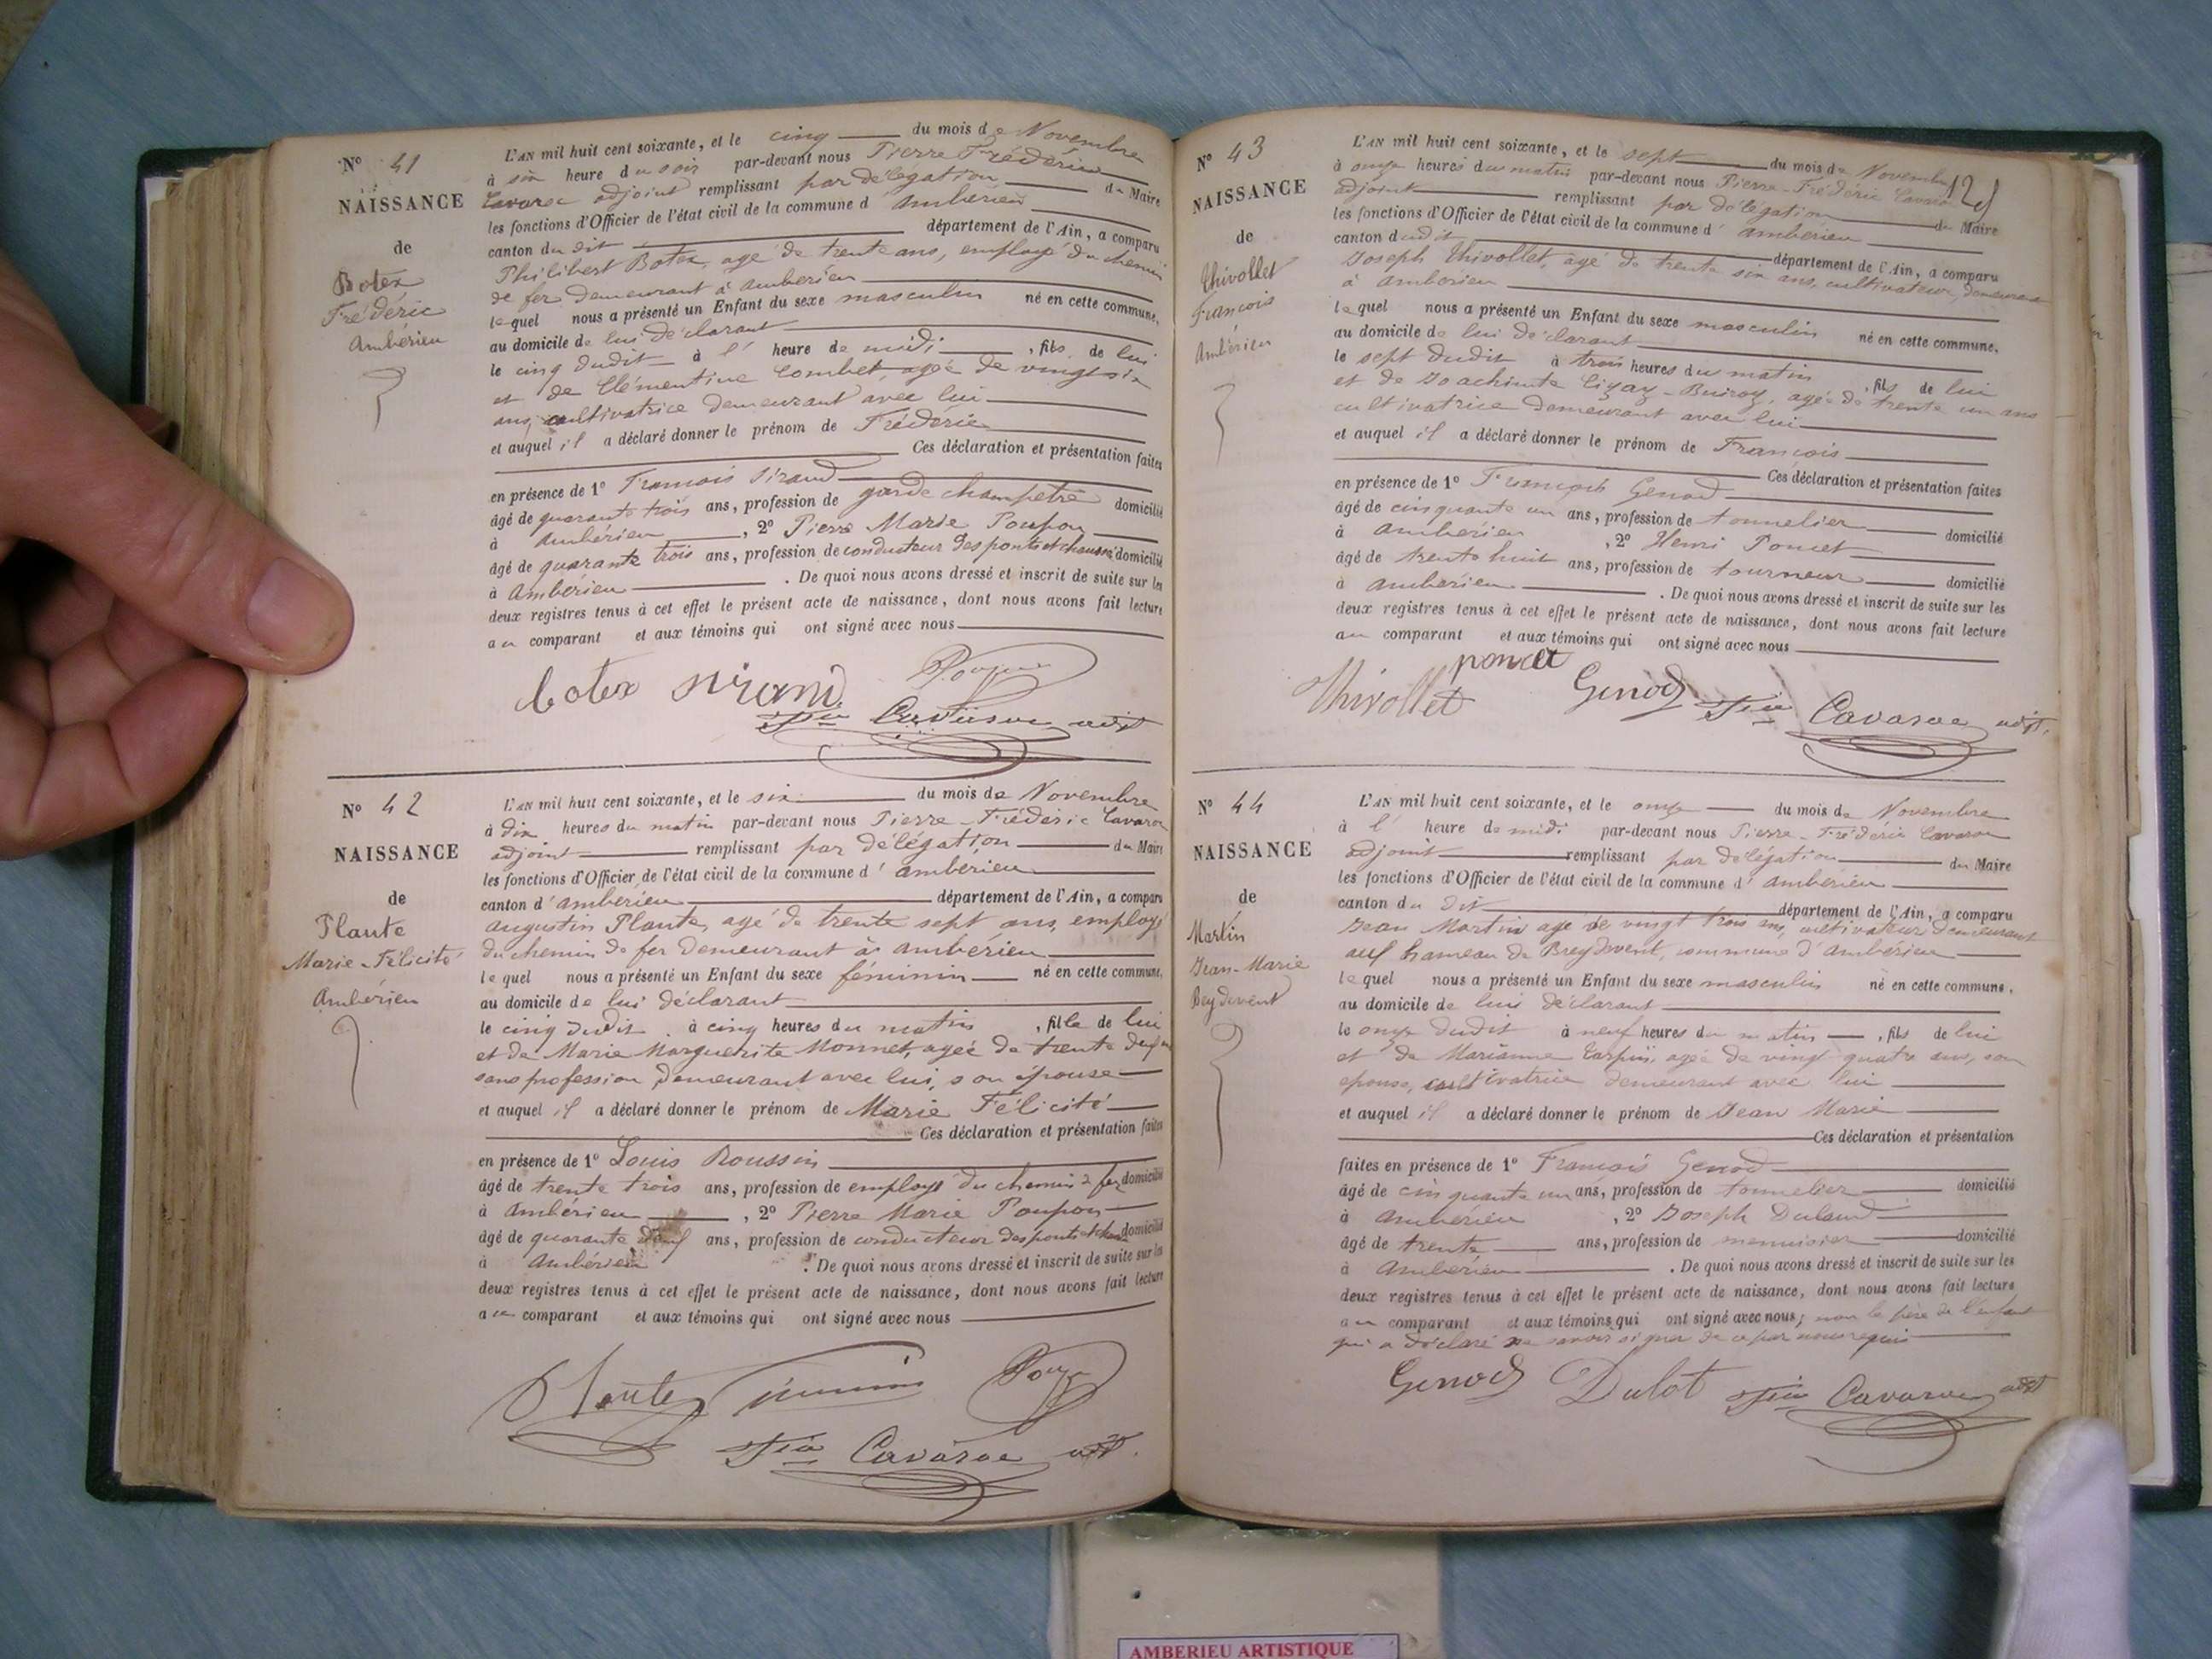 N° 41
NAISSANCE
de
Botex
Frédéric
Ambérieu
L'AN mil huit cent soixante, et le cinq du mois de Novembre
à six heure du soir par-devant nous Pierre Frédéric
Cavaroc adjoint remplissant par délégation du Maire
les fonctions d'Officier de l'état civil de la commune d'Ambérieu
canton du dit département de l'Ain, a comparu
Philibert Botex, agé de trente ans, employé du chemin
de fer demeurant à Ambérieu
lequel nous a présenté un Enfant du sexe masculin né en cette commune,
au domicile de lui déclarant
le cinq dudit à l' heure de midi, fils de lui
et de Clémentine Combet, agée de vingt six
ans, cultivatrice demeurant avec lui
et auquel il a déclaré donner le prénom de Frédéric
Ces déclaration et présentation faites
en présence de 1° François Sirand
âgé de quarante trois ans, profession de garde champetre domicilié
à Ambérieu, 2° Pierre Marie Poupon
âgé de quarante trois ans, profession de conducteur des ponts et chaussé domicilié
à Ambérieu. De quoi nous avons dressé et inscrit de suite sur les
deux registres tenus à cet effet le présent acte de naissance, dont nous avons fait lecture
au comparant et aux témoins qui ont signé avec nous
botex Sirand
Cavaroc adjt
N° 42
NAISSANCE
de
Plante
Marie-Félicité
Ambérieu
L'AN mil huit cent soixante, et le six du mois de Novembre
à dix heures du matin par-devant nous Pierre-Fréderic Cavaroc
adjoint remplissant par délégation du Maire
les fonctions d'Officier de l'état civil de la commune d'Ambérieu
canton d'Ambérieu département de l'Ain, a comparu
Augustin Plante, agé de trente sept ans, employé
du chemin de fer demeurant à Ambérieu
lequel nous a présenté un Enfant du sexe féminin né en cette commune,
au domicile de lui déclarant
le cinq dudit à cinq heures du matin, fille de lui
et de Marie Marguerite Monnet, agée de trente deux
sans profession, demeurant avec lui, son épouse
et auquel il a déclaré donner le prénom de Marie Félicité
Ces déclaration et présentation faites
en présence de 1° Louis Roussin
âgé de trente trois ans, profession de employé du chemin de fer domicilié
à Ambérieu, 2° Pierre Marie Poupon
âgé de quarante ans, profession de conducteur des ponts et domicilié
à Ambérieu. De quoi nous avons dressé et inscrit de suite sur les
deux registres tenus à cet effet le présent acte de naissance, dont nous avons fait lecture
au comparant et aux témoins qui ont signé avec nous
Plante
Cavaroc adjt.
N° 43
NAISSANCE
de
Thivollet
François
Ambérieu
L'AN mil huit cent soixante, et le sept du mois de Novembre
à onze heures du matin par-devant nous Pierre-Frédéric Cavaroc
adjoint remplissant par délégation du Maire
les fonctions d'Officier de l'état civil de la commune d'Ambérieu
canton dudit département de l'Ain, a comparu
Joseph Thivollet, âgé de trente six ans, cultivateur, demeurant
à Ambérieu
lequel nous a présenté un Enfant du sexe masculin né en cette commune,
au domicile de lui déclarant
le sept dudit à trois heures du matin, fils de lui
et de Joachinte agée de trente un ans
cultivatrice demeurant avec lui
et auquel il a déclaré donner le prénom de François
Ces déclaration et présentation faites
en présence de 1° François Genod
âgé de cinquante un ans, profession de tonnelier domicilié
à Ambérieu, 2° Henri Poncet
âgé de trente huit ans, profession de tourneur domicilié
à Ambérieu. De quoi nous avons dressé et inscrit de suite sur les
deux registres tenus à cet effet le présent acte de naissance, dont nous avons fait lecture
au comparant et aux témoins qui ont signé avec nous
Thivollet poncet Genod Cavaroc adjt.
N° 44
NAISSANCE
de
Martin
Jean-Marie
Beydevent
L'AN mil huit cent soixante, et le onze du mois de Novembre
à l' heure de midi par-devant nous Pierre-Frédéric Cavaroc
adjoint remplissant par délégation du Maire
les fonctions d'Officier de l'état civil de la commune d'Ambérieu
canton du dit département de l'Ain, a comparu
Jean Martin agé de vingt trois ans, cultivateur demeurant
au hameau de Breydevent, commune d'Ambérieu
lequel nous a présenté un Enfant du sexe masculin né en cette commune,
au domicile de lui déclarant
le onze dudit à neuf heures du matin, fils de lui
et de Marianne agée de vingt quatre ans, son
épouse, cultivatrice demeurant avec lui
et auquel il a déclaré donner le prénom de Jean Marie
Ces déclaration et présentation
faites en présence de 1° François Genod
âgé de cinquante un ans, profession de tonnelier domicilié
à Ambérieu, 2° Joseph
âgé de trente ans, profession de menuisier domicilié
à Ambérieu. De quoi nous avons dressé et inscrit de suite sur les
deux registres tenus à cet effet le présent acte de naissance, dont nous avons fait lecture
au comparant et aux témoins qui ont signé avec nous; non le père de l'enfant
qui a déclaré ne savoir signer de ce par nous requis
Genod Dulot Cavaroc adjt
AMBERIEU ARTISTIQUE